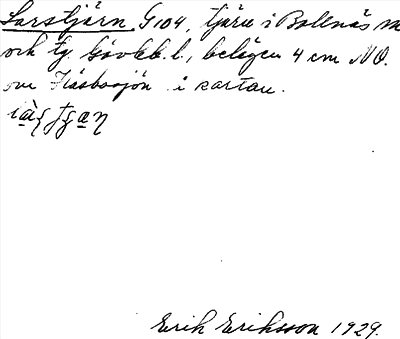 Larstjärn G104, tjärn i Bollnäs sn
och tg Gävleb. l., belägen 4 cm NO.
om Flåsbosjön i kartan.
Erik Eriksson 1929.